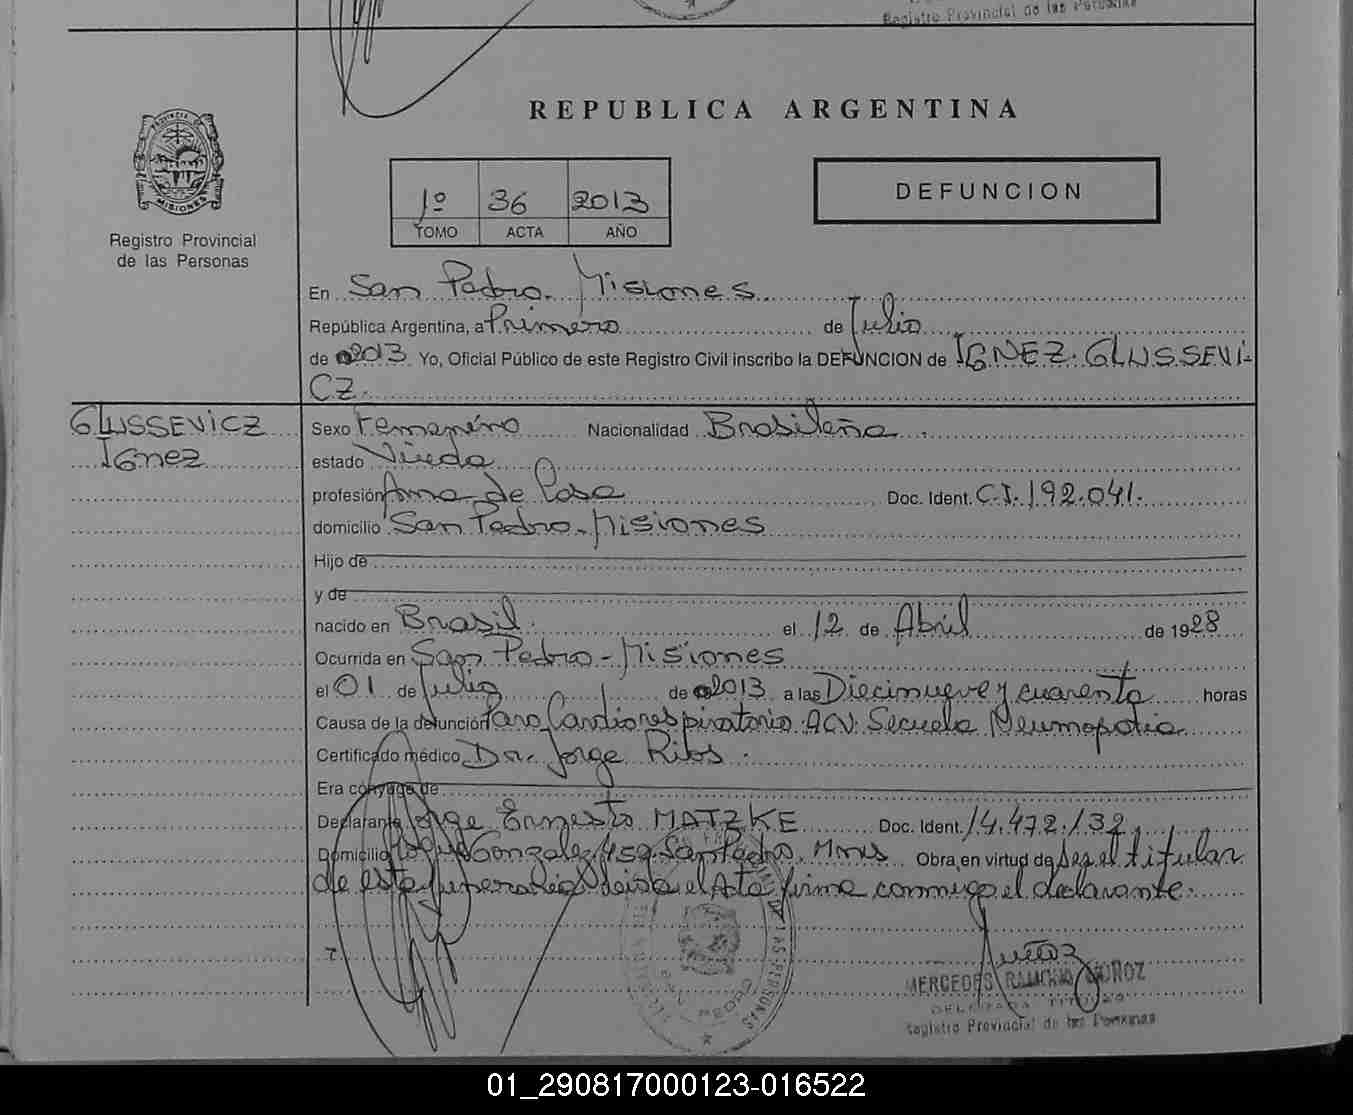 Registro Provincial de las Personas
REPUBLICA ARGENTINA
PROVINCIA DE
MISIONES
Registro Provincial
de las Personas
1º 36 2013
TOMO ACTA AÑO
DEFUNCION
En San Pedro. Misiones
República Argentina, a Primero de Julio
de 2013 Yo, Oficial Público de este Registro Civil inscribo la DEFUNCION de IGNEZ. GLUSSEVI-
CZ.
GLUSSEVICZ
Ignez
Sexo Femenino Nacionalidad Brasileña.
estado Viuda
profesión Ama de Casa Doc. Ident. C.I. 192.041.
domicilio San Pedro - Misiones
Hijo de
y de
nacido en Brasil. el 12 de Abril de 1928
Ocurrida en San Pedro - Misiones
el 01 de Julio de 2013 a las Diecinueve y cuarenta horas
Causa de la defunción Paro Cardiorespiratorio. ACV. Secuela Neumopatia
Certificado médico Dr. Jorge Ribs.
Era cónyuge de
Declarante Jorge Ernesto MATZKE Doc. Ident. 14.472.132
Domicilio Roque Gonzalez 459. San Pedro. Mnes Obra, en virtud de ser el titular
de esta funeraria leida el Acta firma conmigo el declarante.
MERCEDES RAMONA MUÑOZ
DELEGADA TITULAR
Registro Provincial de las Personas
LAS PERSONAS
SAN PEDRO
01_290817000123-016522